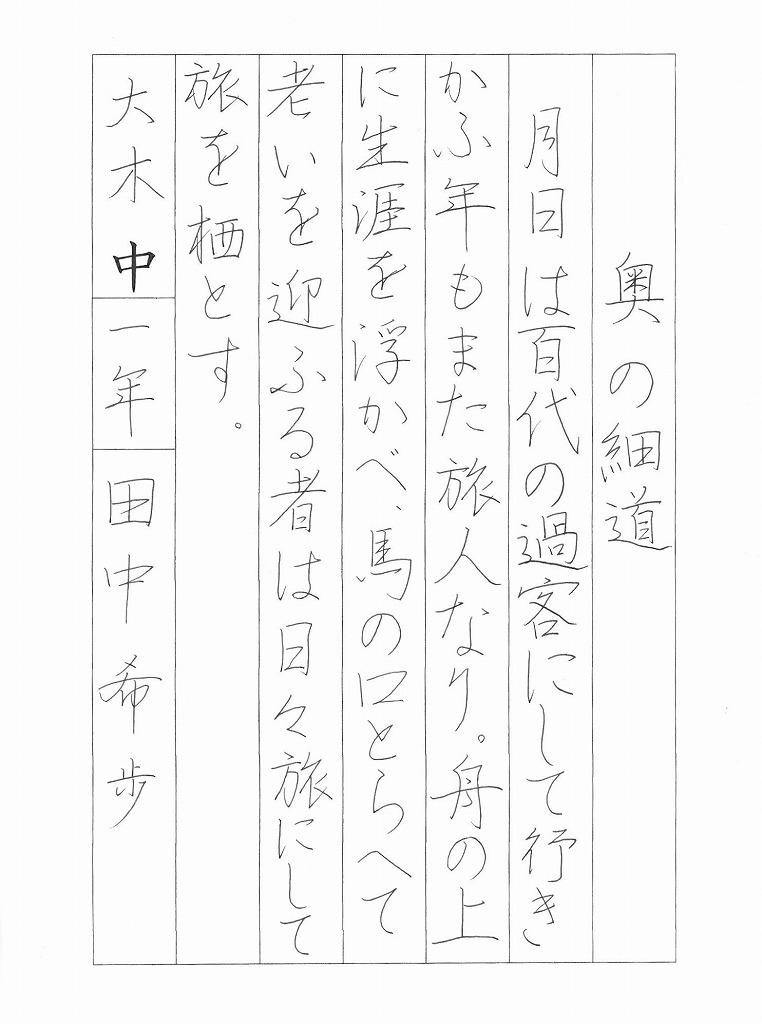 奥の細道
月日は百代の過客にして行き
かふ年もまた旅人なり。舟の上
に生涯を浮かべ、馬の口とらへて
老いを迎ふる者は日々旅にして
旅を栖とす。
大木中一年田中希歩